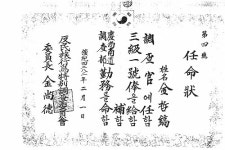 第四號
任命狀
姓名 金哲鎬
調査官에任함
三級一號俸을給함
慶尙南道
調査部勤務을命함
補함
檀紀四二八二年二月一日
反民族行爲特別調査委員會
委員長 金尙德